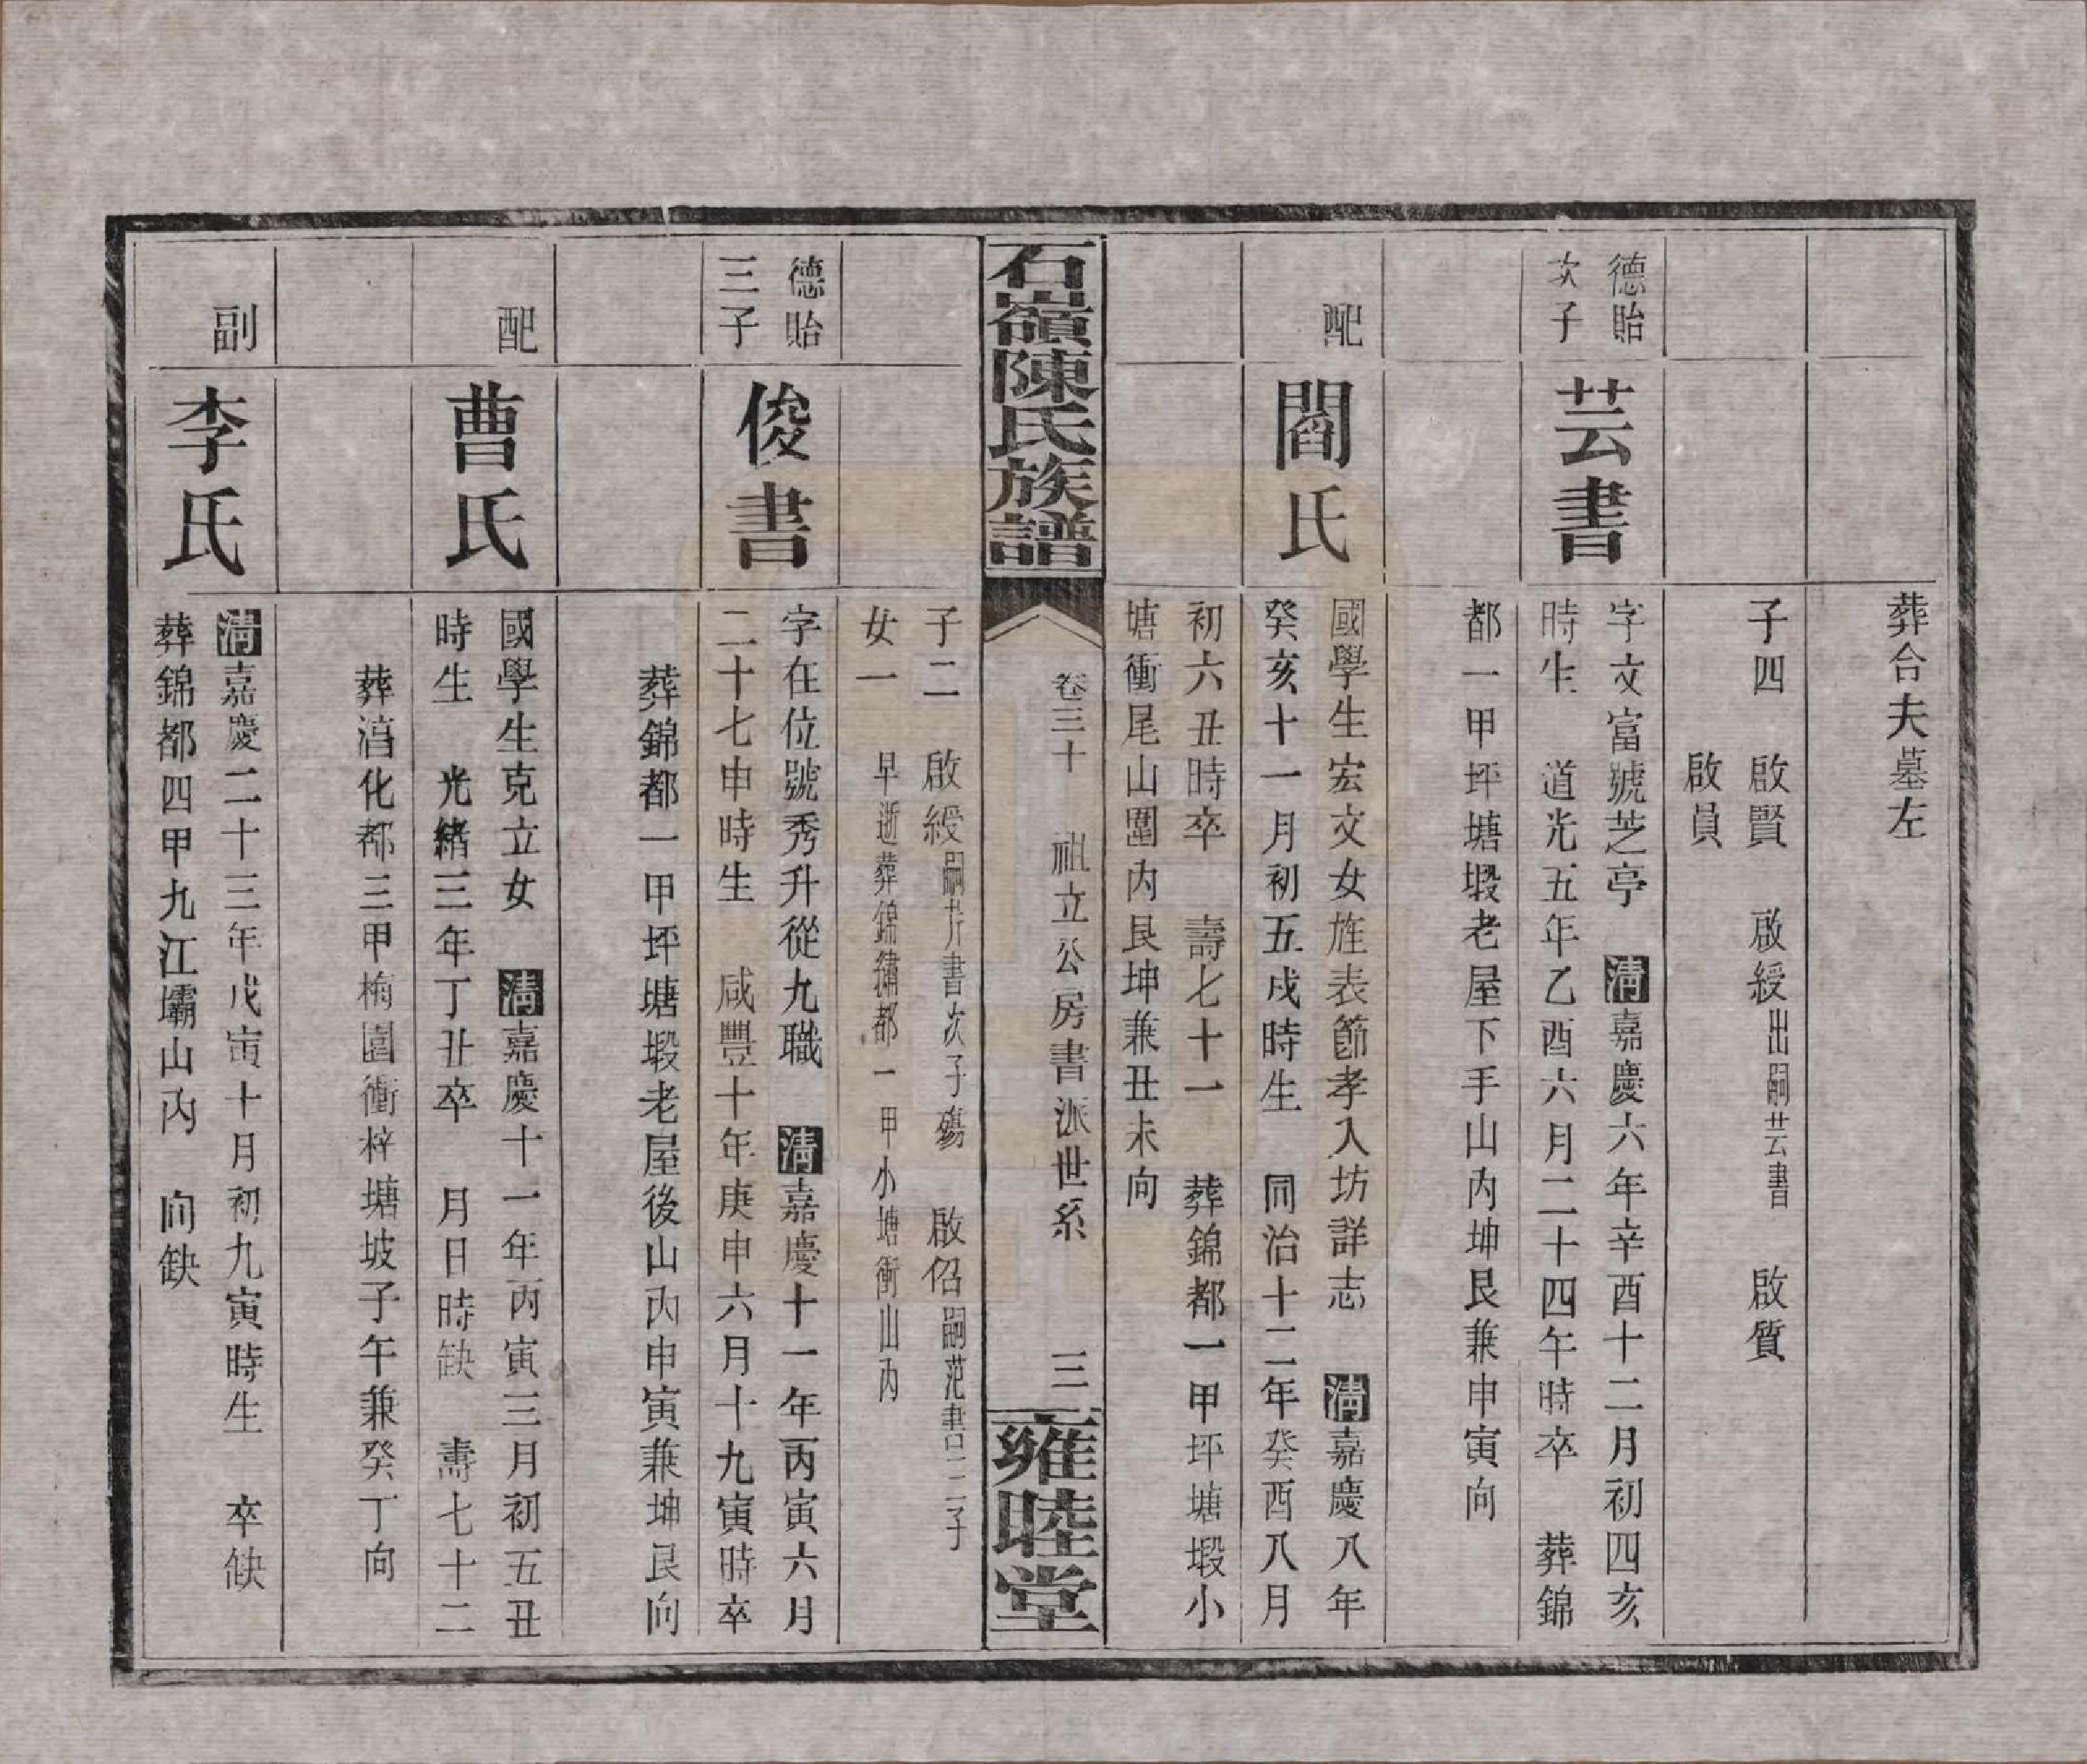 葬合夫墓左
子四　啟賢　啟綬出嗣芸書　啟質
啟員
德貽
次子
芸書
字文富號芝亭　清嘉慶六年辛酉十二月初四亥
時生　道光五年乙酉六月二十四午時卒　葬錦
都一甲坪塘塅老屋下手山內坤艮兼申寅向
配
閻氏
國學生宏文女旌表節孝入坊詳志　清嘉慶八年
癸亥十一月初五戌時生　同治十二年癸酉八月
初六丑時卒　壽七十一　葬錦都一甲坪塘塅小
塘衝尾山圍內艮坤兼丑未向
石嶺陳氏族譜
卷三十　祖立公房書派世系　三
雍睦堂
子二　啟綬嗣芥書次子殤　啟佋嗣范書二子
女一　早逝葬錦繡都一甲小塘衝山內
德貽
三子
俊書
字在位號秀升從九職　清嘉慶十一年丙寅六月
二十七申時生　咸豐十年庚申六月十九寅時卒
葬錦都一甲坪塘塅老屋後山內申寅兼坤艮向
配
曹氏
國學生克立女　清嘉慶十一年丙寅三月初五丑
時生　光緒三年丁丑卒　月日時缺　壽七十二
葬湻化都三甲梅園衝梓塘坡子午兼癸丁向
副
李氏
清嘉慶二十三年戊寅十月初九寅時生　卒缺
葬錦都四甲九江壩山內　向缺